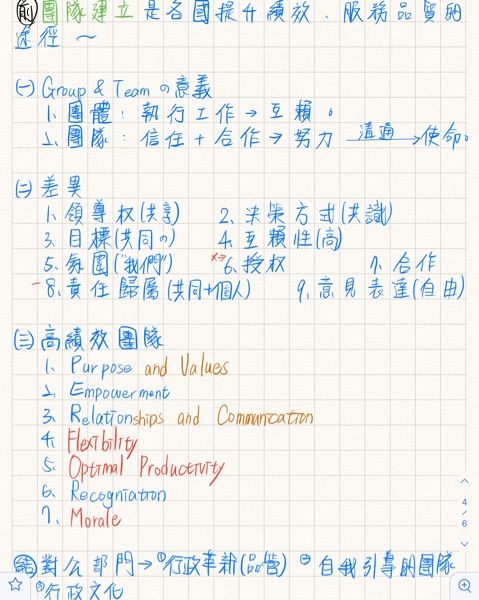 (前)團隊建立是各國提升績效、服務品質的
途徑～
(一) Group & Team の意義
1. 團體：執行工作→互賴。
2. 團隊：信任+合作→努力 溝通→使命。
(二) 差異
1. 領導权(共享) 2. 決策方式(共識)
3. 目標(共同の) 4. 互賴性(高)
5. 氛圍("我們") ×→6. 授权 7. 合作
-8. 責任歸屬(共同+個人) 9. 意見表達(自由)
(三) 高績效團隊
1. Purpose and Values
2. Empowerment
3. Relationships and Communication
4. Flexibility
5. Optimal Productivity
6. Recogniation
7. Morale
4
/
6
(結)對公部門→①行政革新(品管) ②自我引導的團隊
③行政文化